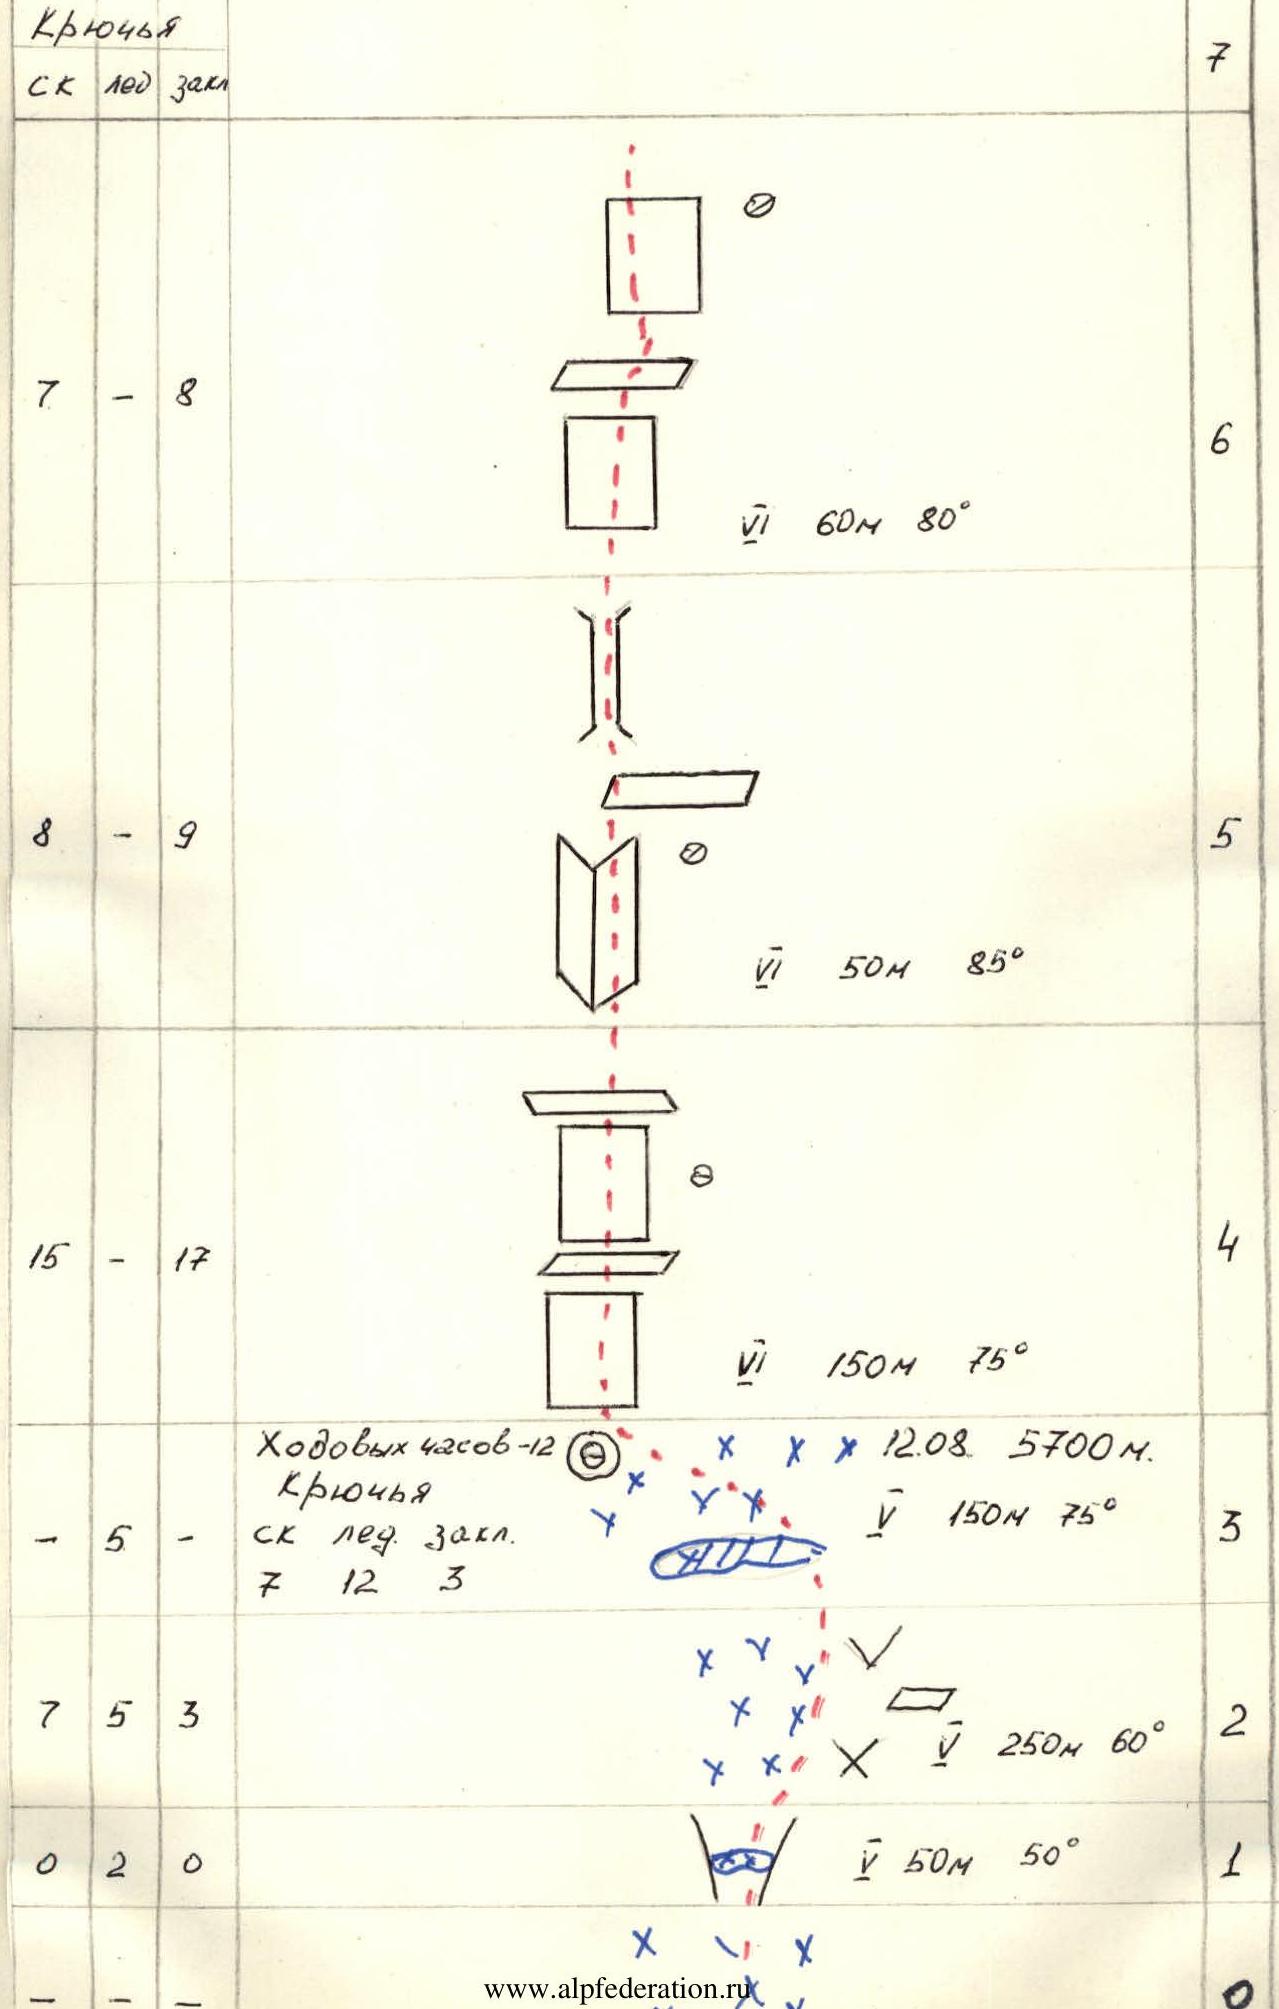 Крючья
ск лед закл
7
7 – 8
6
VI 60м 80°
8 – 9
5
VI 50м 85°
15 – 17
4
VI 150м 75°
Ходовых часов-12 12.08. 5700м.
Крючья
V 150м 75°
– 5 –
ск лед. закл.
3
7 12 3
7 5 3
2
V 250м 60°
0 2 0
V 50м 50°
1
www.alpfederation.ru
– – –
0